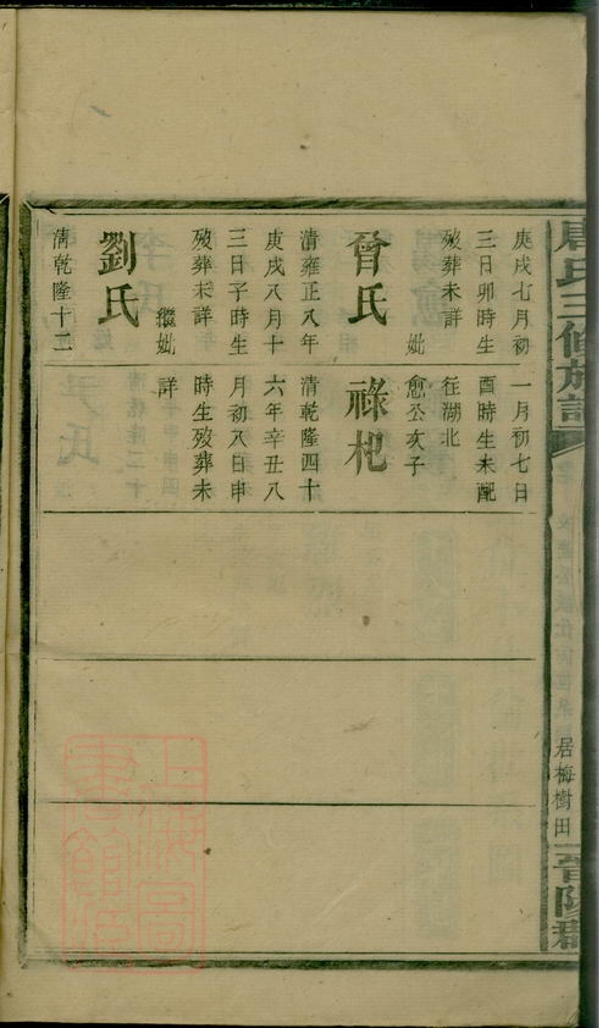 唐氏三修族譜
居梅樹田
晉陽郡
庚戌七月初
三日卯時生
歿葬未詳
妣
曾氏
清雍正八年
庚戌八月十
三日子時生
歿葬未詳
繼妣
劉氏
清乾隆十二
一月初七日
酉時生未配
往湖北
愈公次子
祿杞
清乾隆四十
六年辛丑八
月初八日申
時生歿葬未
詳